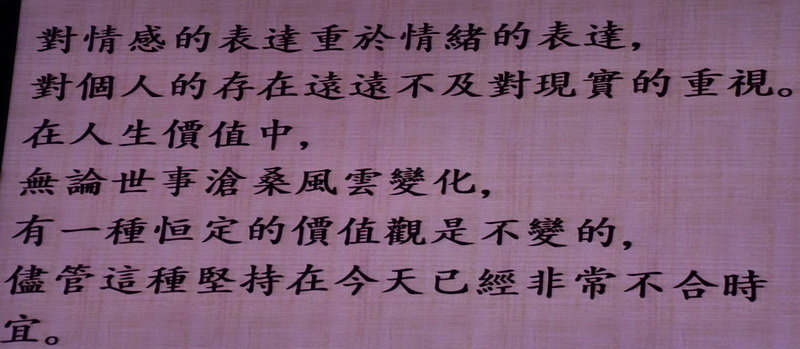 對情感的表達重於情緒的表達，
對個人的存在遠遠不及對現實的重視。
在人生價值中，
無論世事滄桑風雲變化，
有一種恒定的價值觀是不變的，
儘管這種堅持在今天已經非常不合時
宜。